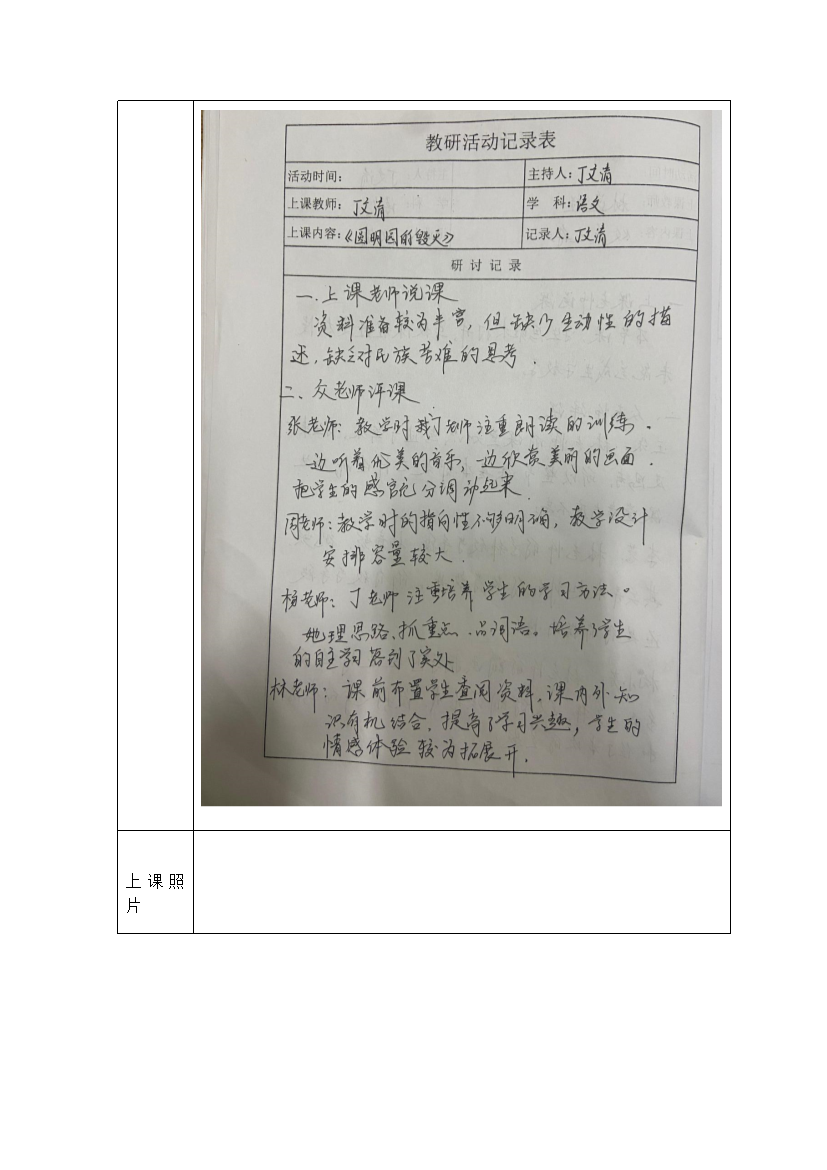 教研活动记录表
活动时间：
主持人：丁文清
上课教师：丁文清
学 科：语文
上课内容：《圆明园的毁灭》
记录人：丁文清
研 讨 记 录
一、上课老师说课
资料准备较为丰富，但缺少生动性的描
述，缺乏对民族苦难的思考。
二、众老师评课
张老师：教学时丁老师注重朗读的训练。
一边听着优美的音乐，一边欣赏美丽的画面．
把学生的感官充分调动起来．
周老师：教学时的指向性不够明确，教学设计
安排容量较大．
杨老师：丁老师注重培养学生的学习方法。
她理思路、抓重点、品词语。培养了学生
的自主学习落到了实处
林老师：课前布置学生查阅资料，课内外知
识有机结合，提高了学习兴趣，学生的
情感体验较为拓展开．
上课照
片